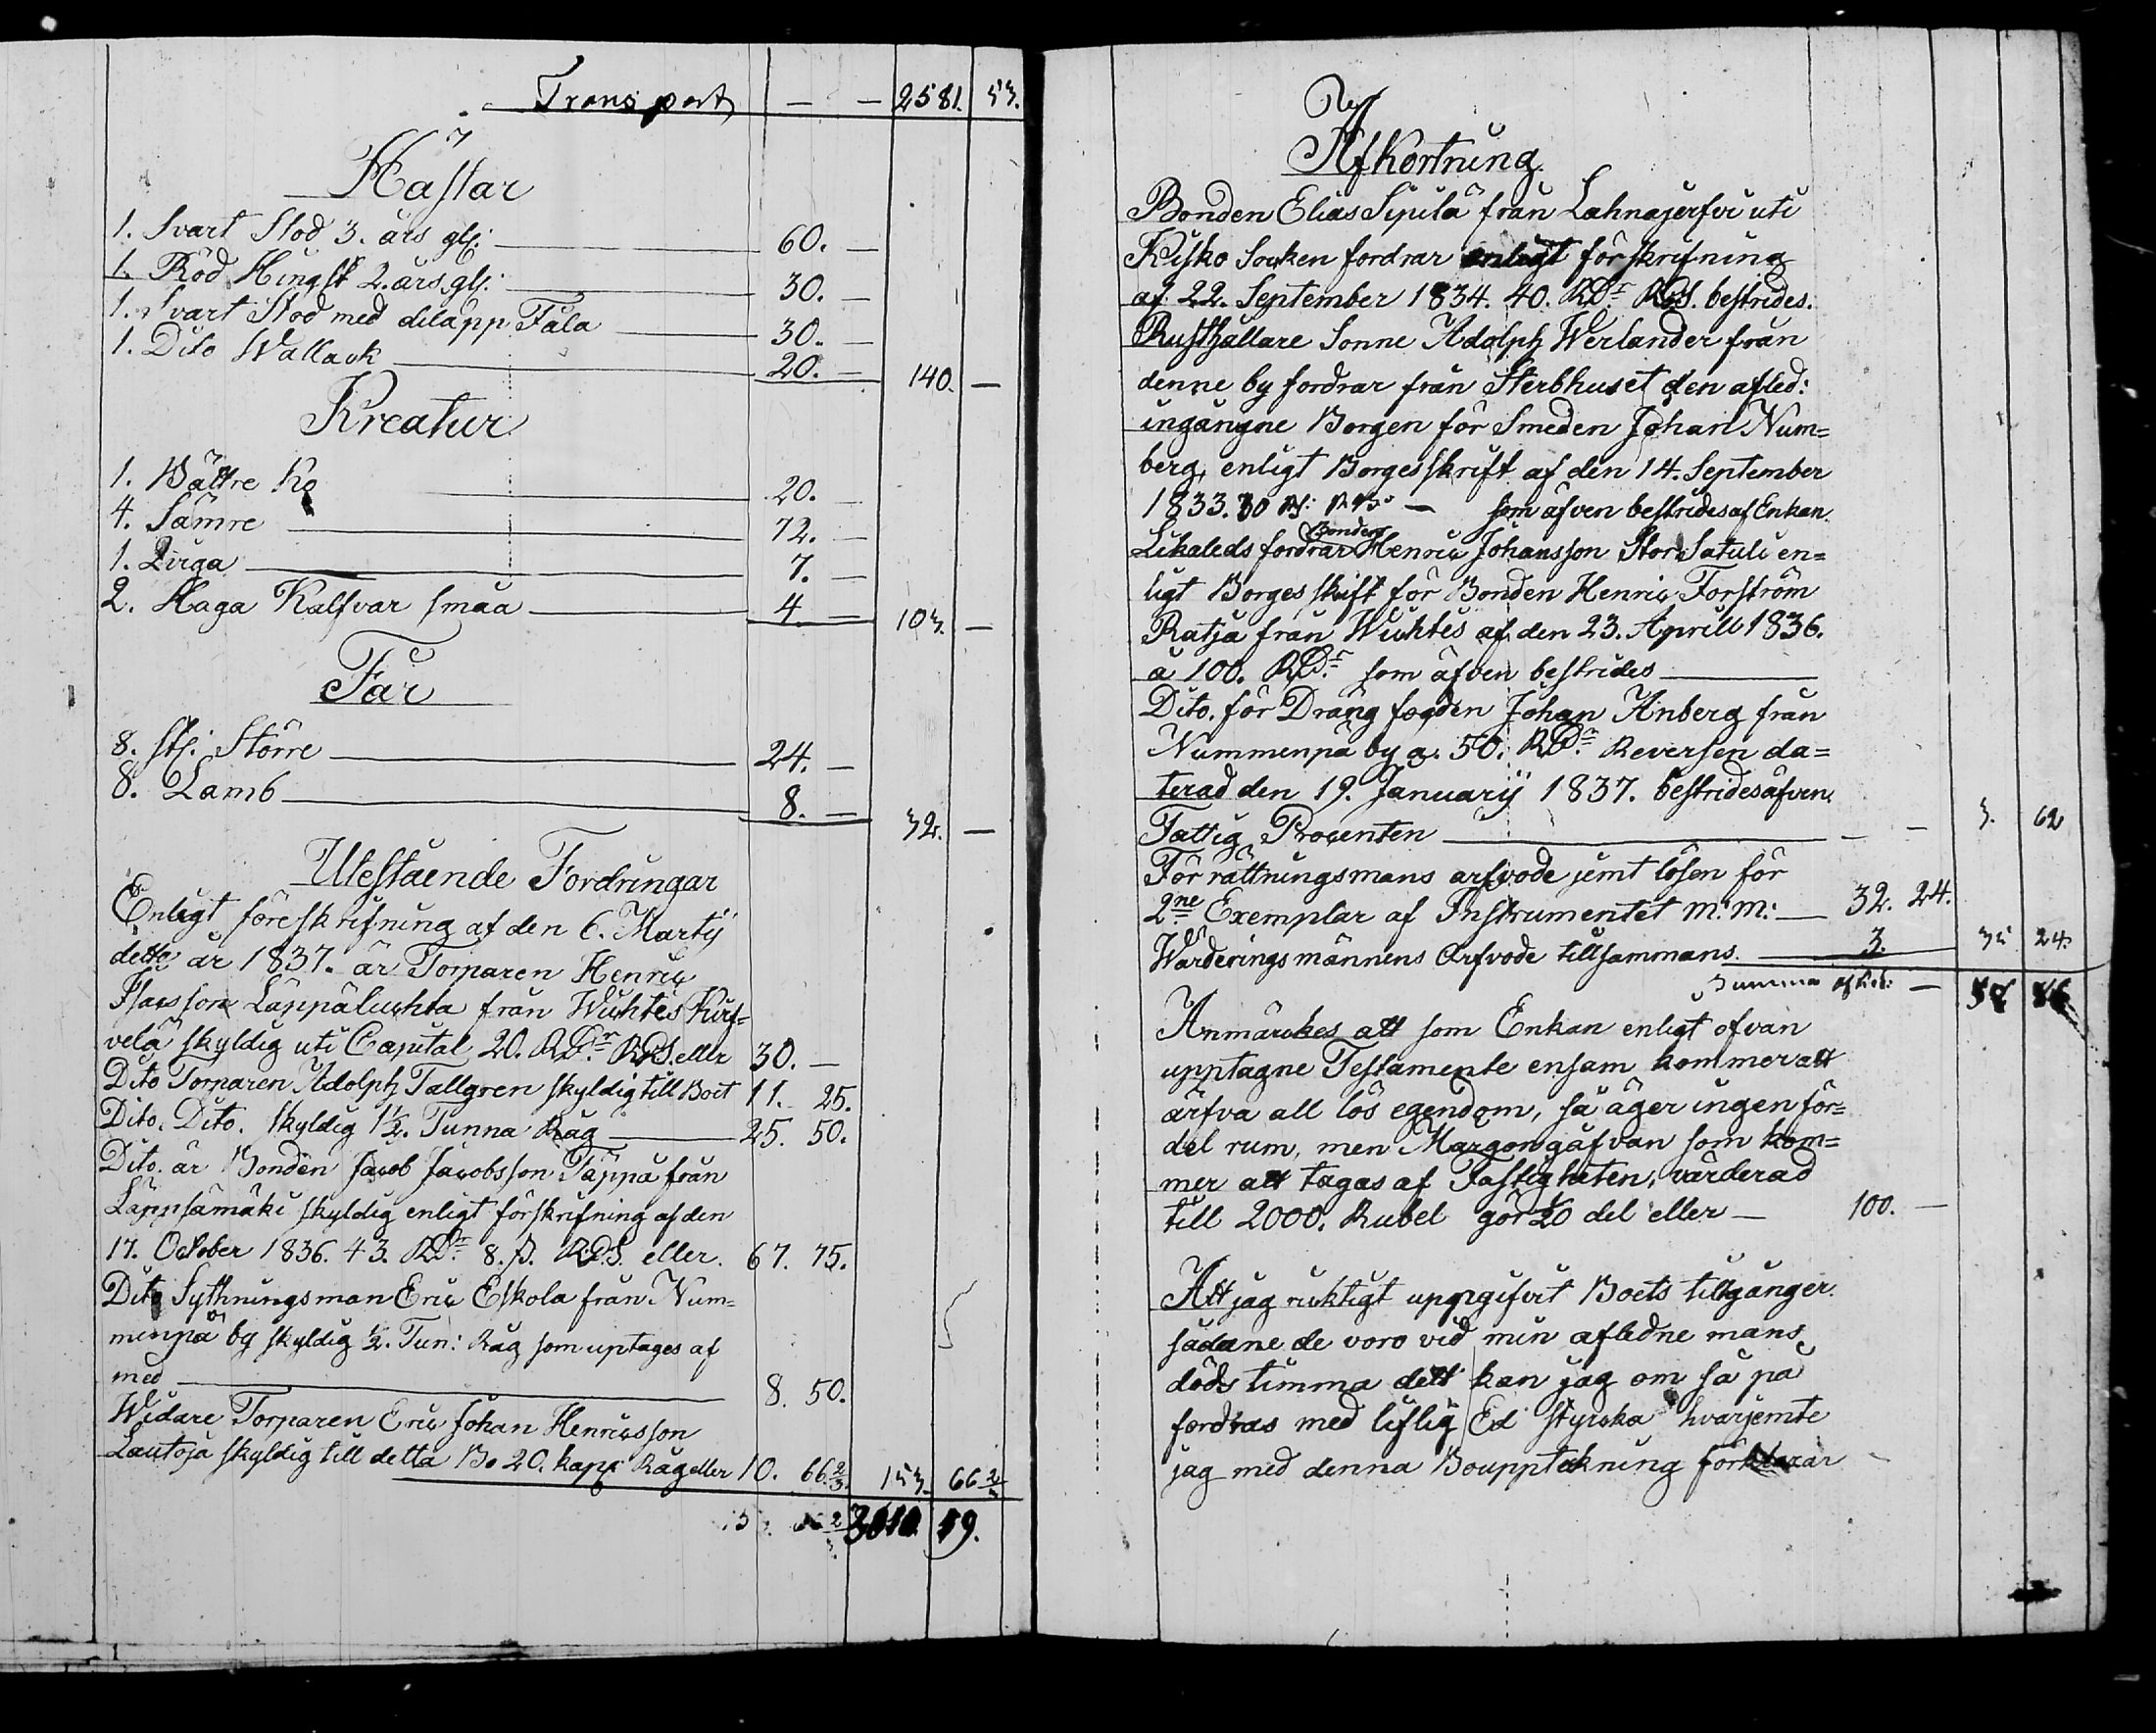 Transport — — 2581. 53.
Hästar
1. Svart Stod 3. års gl: — 60. —
1. Röd Hingst 2. års gl: — 30. —
1. Svart Stod med dilapp Fåla — 30. —
1. Dito Wallack — 20. — 140. —
Kreatur
1. Bättre Ko — 20. —
4. Sämre — 72. —
1. Qviga — 7. —
2. Haga Kalfvar små — 4 — 103. —
Får
8. st: Större — 24. —
8. Lamb — 8. — 32. —
Utestående Fordringar
Enligt föreskrifning af den 6. Martij
detta år 1837. är Torparen Henric
Isacsson Läppäluhta från Wichtis Kirf=
velä skyldig uti Capital 20. RDr RGS. eller 30. —
Dito Torparen Adolph Tallgren skyldig till Boet 11. 25.
Dito. Dito. skyldig 1½. Tunna Råg — 25. 50.
Dito. är Bonden Jacob Jacobsson Täppä från
Läppsämäki skyldig enligt förskrifning af den
17. October 1836. 43. RDr 8. s. R.G.S. eller. 67. 75.
Dito Sythningsman Eric Eskola från Num=
menpä by skyldig ½. Tun: Råg som uptages af
med — 8. 50.
Widare Torparen Eric Johan Henricsson
Lautoja skyldig till detta Bo 20. kapp Råg eller 10. 66 2/3. 153. 66 2/3
3010. 19.
Afkortning
Bonden Elias Sipilä från Lahnajerfvi uti
Kisko Socken fordrar enligt förskrifning
af 22. September 1834. 40. RDr RGS. bestrides.
Rusthållare Sonne Adolph Werlander från
denne by fordrar från Sterbhuset den afled:
ingångne Borgen för Smeden Johan Num=
berg, enligt Borgesskrift af den 14. September
1833. 30 — som äfven bestrides af Enkan.
Likaleds fordrar Bonden Henric Johansson Stor Satuli en=
ligt Borges skrift för Bonden Henric Forström
Ratja från Wichtis af den 23. Aprill 1836.
à 100. RDr som äfven bestrides —
Dito. för Dräng fogden Johan Anberg från
Nummenpä by a. 50. RDr Reversen da=
terad den 19. Januarij 1837. bestrides äfven.
Fattig Procenten — — — 3. 62
Förrättningsmans arfvode jemt lösen för
2ne Exemplar af Instrumentet m: m: — 32. 24.
Wärderingsmännens Arfvode tillsammans. — 3. 35 24.
Summa afkort: —
Anmärckes att som Enkan enligt ofvan
upptagne Testamente ensam kommer att
ärfva all lös egendom, så äger ingen för=
del rum, men Margongåfvan som kom=
mer att tagas af Fastigheten, värderad
till 2000. Rubel gör 1/20 del eller — 100. —
Att jag riktigt uppgifvit Boets tillgånger
sådane de voro vid min afledne mans
döds timma dett kan jag om så på
fordras med liflig Ed styrcka hvarjemte
jag med denna Boupptekning förklarar